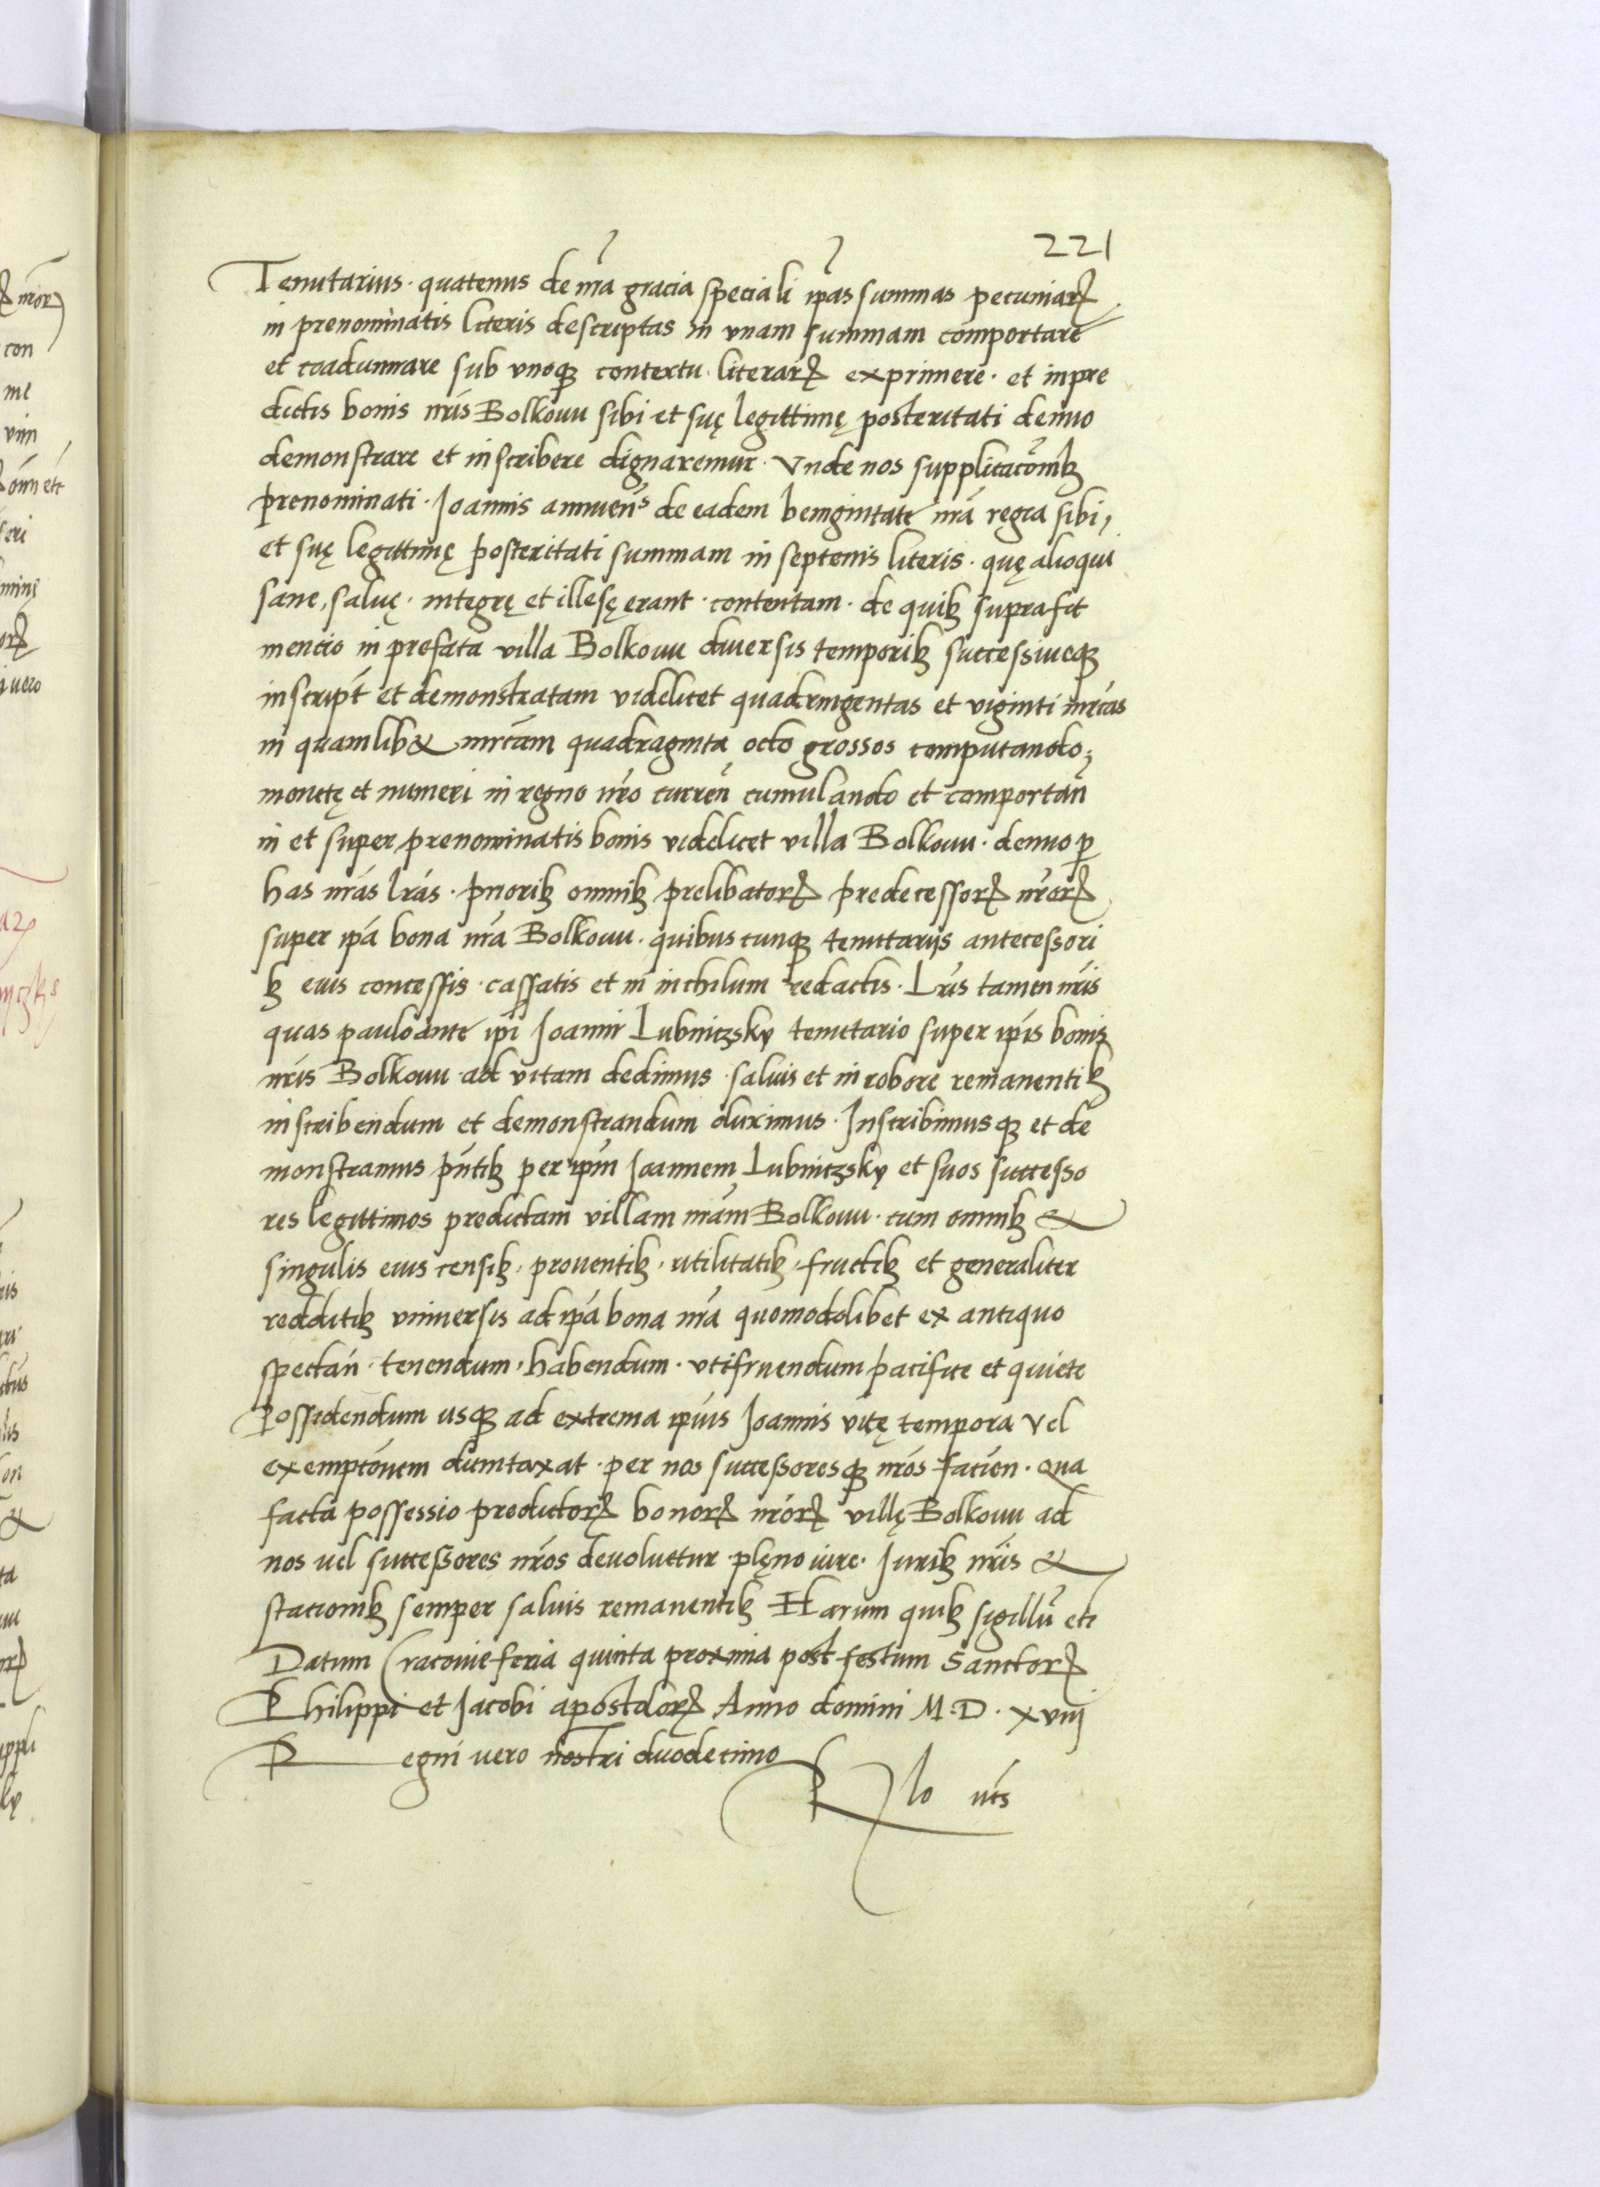 221
Tenutarius · quatenus de nrã gracia speciali ip̃as summas pecuniarꝝ
in prenominatis literis descriptas in vnam summam comportare
et coadunnare sub vnoqꝫ contextu literarꝝ exprimere · et in pre
dictis bonis nr̃is Bolkouu sibi et suę legittimę posteritati denuo
demonstrare et inscribere dignaremur · Vnde nos supplicacõnibꝫ
prenominati · Joannis annuen̄s de eadem benignitate nrã regia sibi,
et suę legittimę posteritati summam in septenis literis · quę alioqui
sane, saluę · integrę et illesę erant · contentam · de quibꝫ supra fit
mencio in prefata villa Bolkouu diuersis temporibꝫ successiueqꝫ
inscript̃ et demonstratam videlicet quadringentas et viginti mrc̃as
in quamlibꝫ mrc̃am quadraginta octo grossos computando,
monetę et numeri in regno nr̃o curren̄ cumulando et comportan̄
in et super prenominatis bonis videlicet villa Bolkouu · denuo ꝑ
has nr̃as lr̃as · prioribꝫ omnibꝫ prelibatorꝝ predecessorꝝ nr̃orꝝ
super ip̃a bona nrã Bolkouu · quibuscunqꝫ tenutarijs antecessori
bꝫ eius concessis · cassatis et in inichilum redactis · Lr̃is tamen nr̃is
quas paulo ante ip̃i Joanni Lubnitzskÿ tenutario super ip̃is bonis
nr̃is Bolkouu · ad vitam dedimus · saluis et in robore remanentibꝫ
inscribendum et demonstrandum duximus · Inscribimusqꝫ et de
monstramus pñtibꝫ per ip̃m Joannem Lubnitzskÿ et suos successo
res legittimos predictam villam nrãm Bolkouu · cum omnibꝫ &
singulis eius censibꝫ · prouentibꝫ · utilitatibꝫ · fructibꝫ et generaliter
redditibꝫ vniuersis ad ip̃a bona nrã quomodolibet ex antiquo
spectan̄ · tenendum · habendum · vtifruendum pacifice et quiete
Possidendum usqꝫ ad extrema ip̃ius Joannis vitę tempora vel
exemptõnem dumtaxat · per nos successoresqꝫ nr̃os facien̄ · Qua
facta possessio predictorꝝ bonorꝝ nr̃orꝝ villę Bolkouu ad
nos vel successores nr̃os deuoluetur plęno iure · Juribꝫ nr̃is &
stacionibꝫ semper saluis remanentibꝫ Harum quibꝫ sigillũ etc
Datum Cracouie feria quinta proxima post festum Sanctorꝝ
Philippi et Jacobi apostolorꝝ Anno domini M·D·xviij
Regni vero nostri duodecimo
Rlo vt s̃